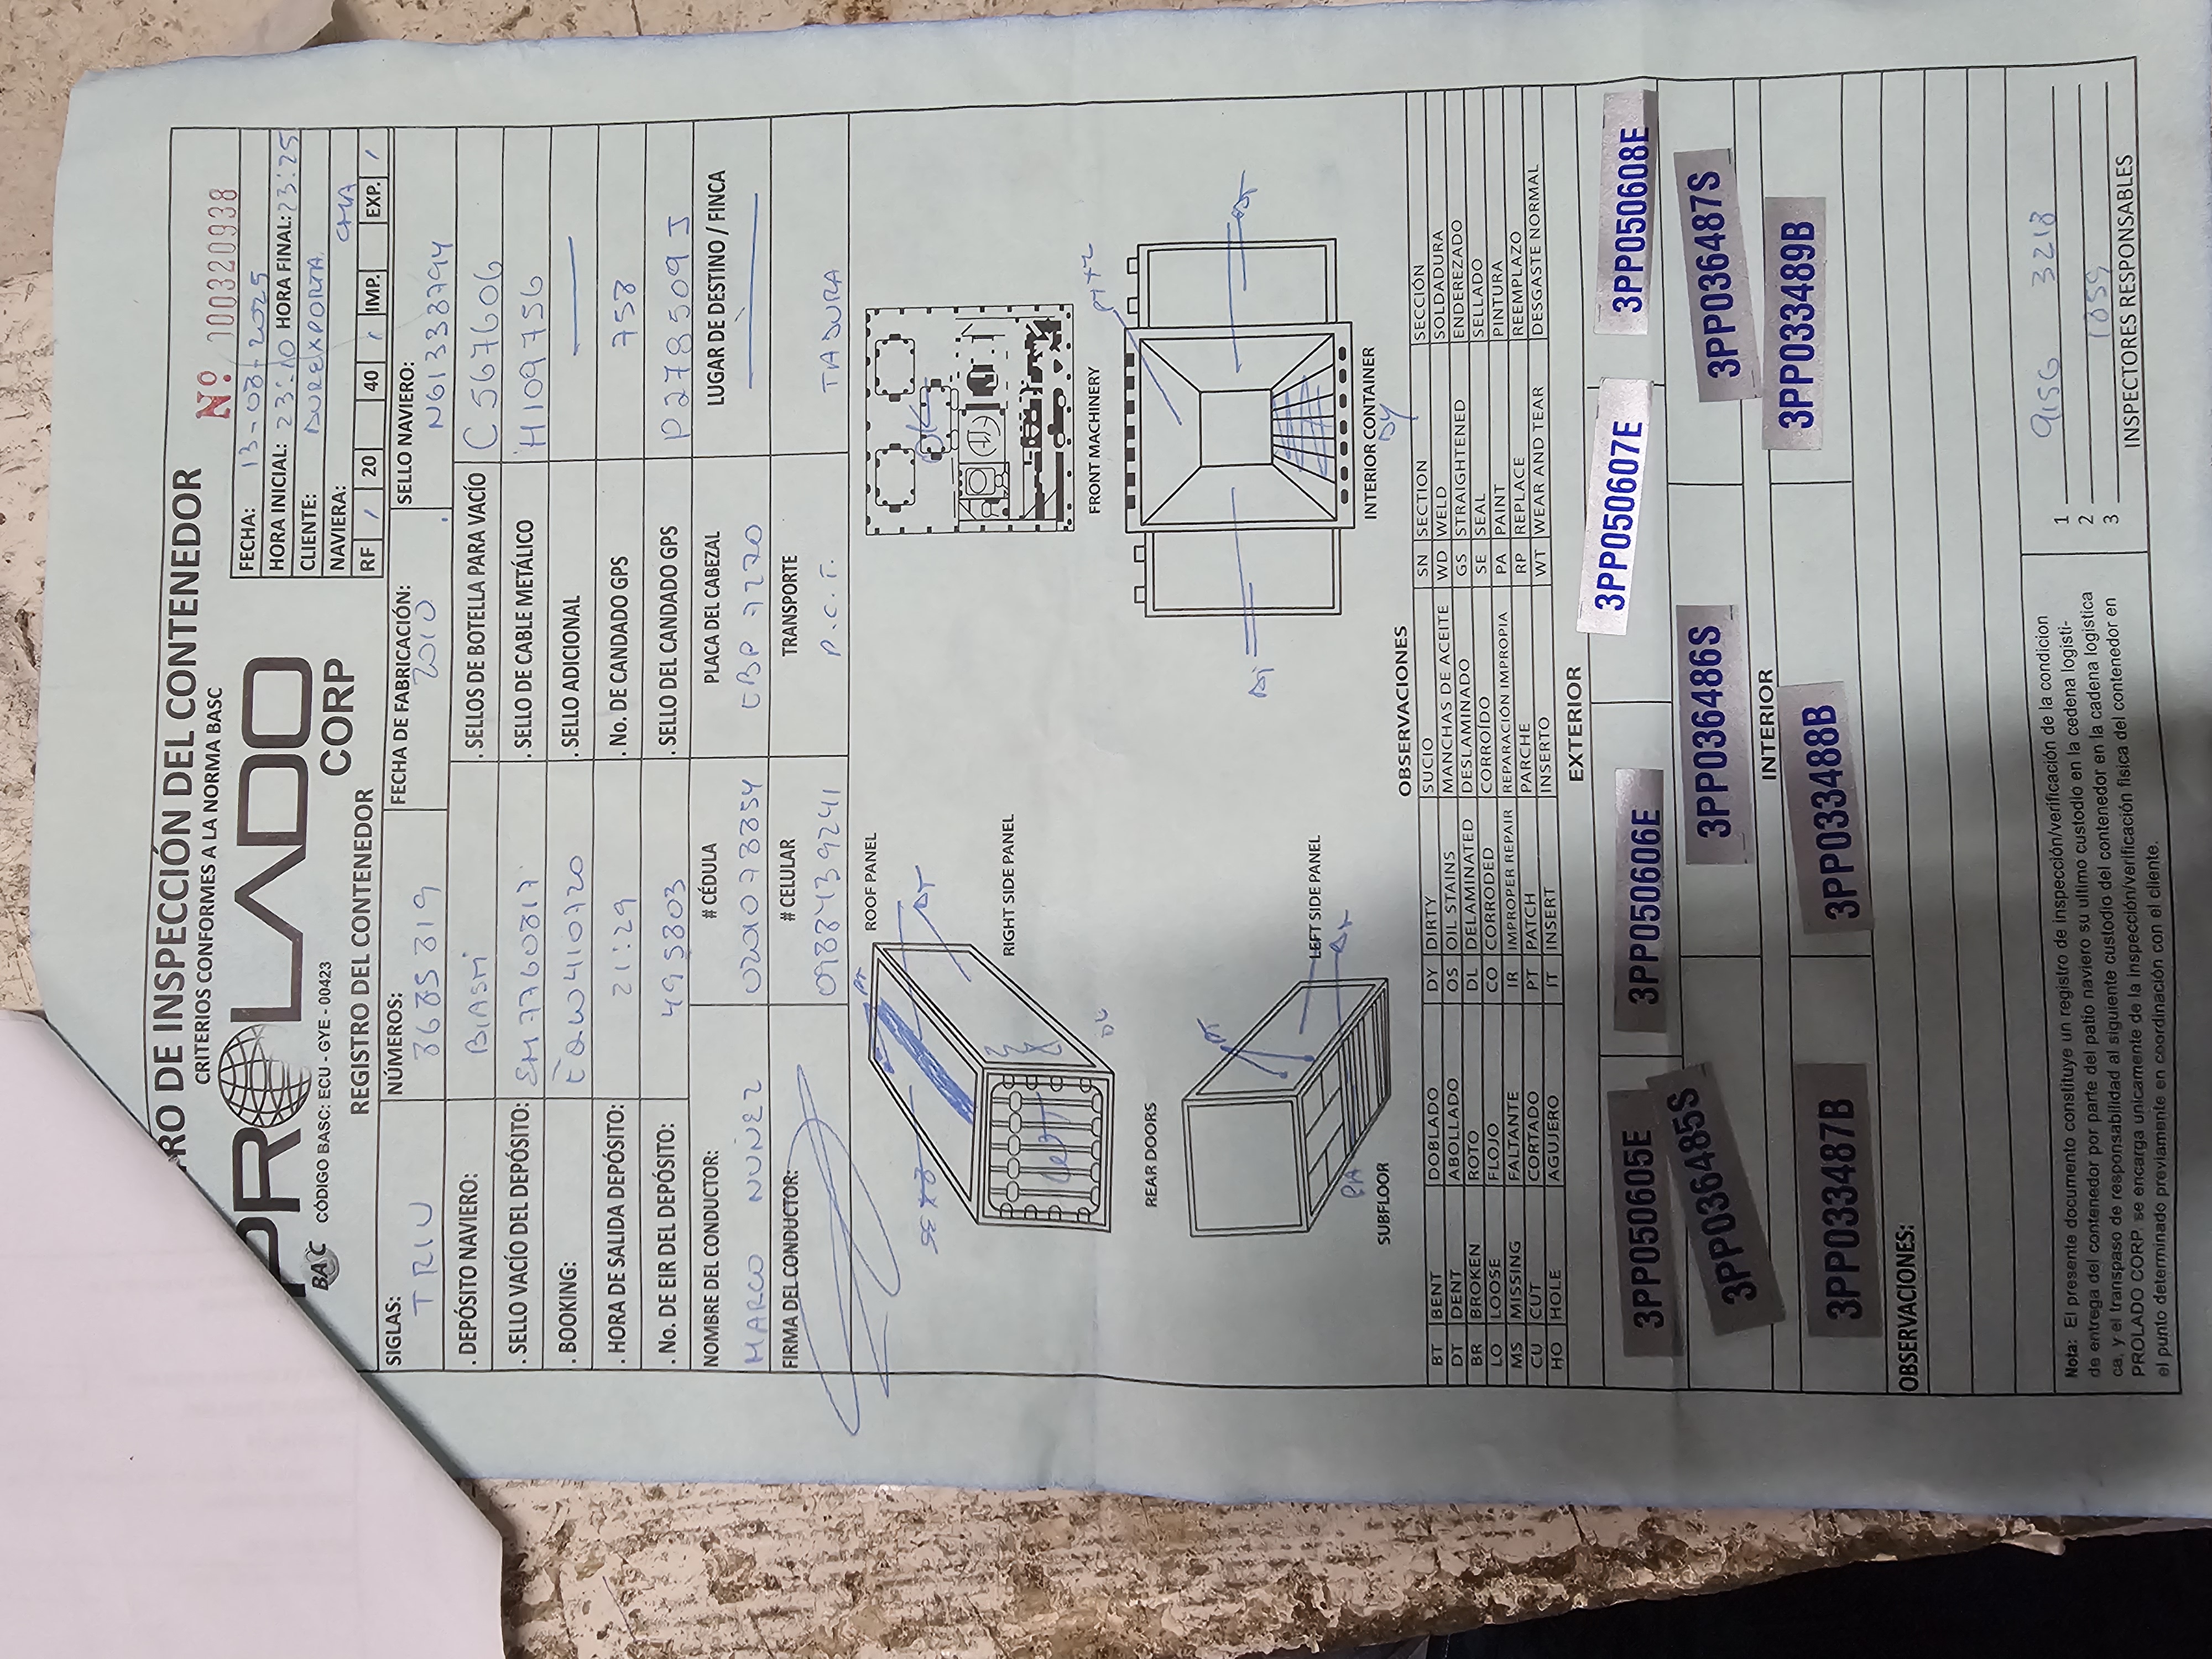 RO DE INSPECCIÓN DEL CONTENEDOR
CRITERIOS CONFORMES A LA NORMA BASC
Nº 000320938
PROLADO
CORP
BASC CÓDIGO BASC: ECU - GYE - 00423
FECHA: 13-08-2025
HORA INICIAL: 23:10 HORA FINAL: 23:25
CLIENTE: DUREXPORTA
NAVIERA: CMA
RF / 20 40 / IMP. EXP. /
REGISTRO DEL CONTENEDOR
SIGLAS: TRIU NÚMEROS: 8685819 FECHA DE FABRICACIÓN: 2010 SELLO NAVIERO: N61338794
. DEPÓSITO NAVIERO: . SELLOS DE BOTELLA PARA VACÍO C 567606
. SELLO VACÍO DEL DEPÓSITO: EM7760817 . SELLO DE CABLE METÁLICO H109756
. BOOKING: EQW410720 . SELLO ADICIONAL
. HORA DE SALIDA DEPÓSITO: 21:29 . No. DE CANDADO GPS 758
. No. DE EIR DEL DEPÓSITO: 495803 . SELLO DEL CANDADO GPS P278509J
NOMBRE DEL CONDUCTOR: # CÉDULA PLACA DEL CABEZAL LUGAR DE DESTINO / FINCA
MARCO NUÑEZ 0201078854 EBP 7270
FIRMA DEL CONDUCTOR: # CELULAR TRANSPORTE
0988439241 P.C.T. TADURA
PT
ROOF PANEL
DT
OK
RIGHT SIDE PANEL
WT
DL
FRONT MACHINERY
PT x2
REAR DOORS
PT
DT DT
LEFT SIDE PANEL
PA DT
SUBFLOOR
INTERIOR CONTAINER
DY
OBSERVACIONES
BT BENT DOBLADO DY DIRTY SUCIO SN SECTION SECCIÓN
DT DENT ABOLLADO OS OIL STAINS MANCHAS DE ACEITE WD WELD SOLDADURA
BR BROKEN ROTO DL DELAMINATED DESLAMINADO GS STRAIGHTENED ENDEREZADO
LO LOOSE FLOJO CO CORRODED CORROÍDO SE SEAL SELLADO
MS MISSING FALTANTE IR IMPROPER REPAIR REPARACIÓN IMPROPIA PA PAINT PINTURA
CU CUT CORTADO PT PATCH PARCHE RP REPLACE REEMPLAZO
HO HOLE AGUJERO IT INSERT INSERTO WT WEAR AND TEAR DESGASTE NORMAL
EXTERIOR
3PP050605E 3PP050606E 3PP050607E 3PP050608E
3PP036485S 3PP036486S 3PP036487S
INTERIOR
3PP033487B 3PP033488B 3PP033489B
OBSERVACIONES:
Nota: El presente documento constituye un registro de inspección/verificación de la condicion
de entrega del contenedor por parte del patio naviero su ultimo custodio en la cedena logisti-
ca, y el transpaso de responsabilidad al siguiente custodio del contenedor en la cadena logistica
PROLADO CORP. se encarga unicamente de la inspección/verificación fisica del contenedor en
el punto determinado previamente en coordinación con el cliente.
1 9156 3218
2
3 1859
INSPECTORES RESPONSABLES